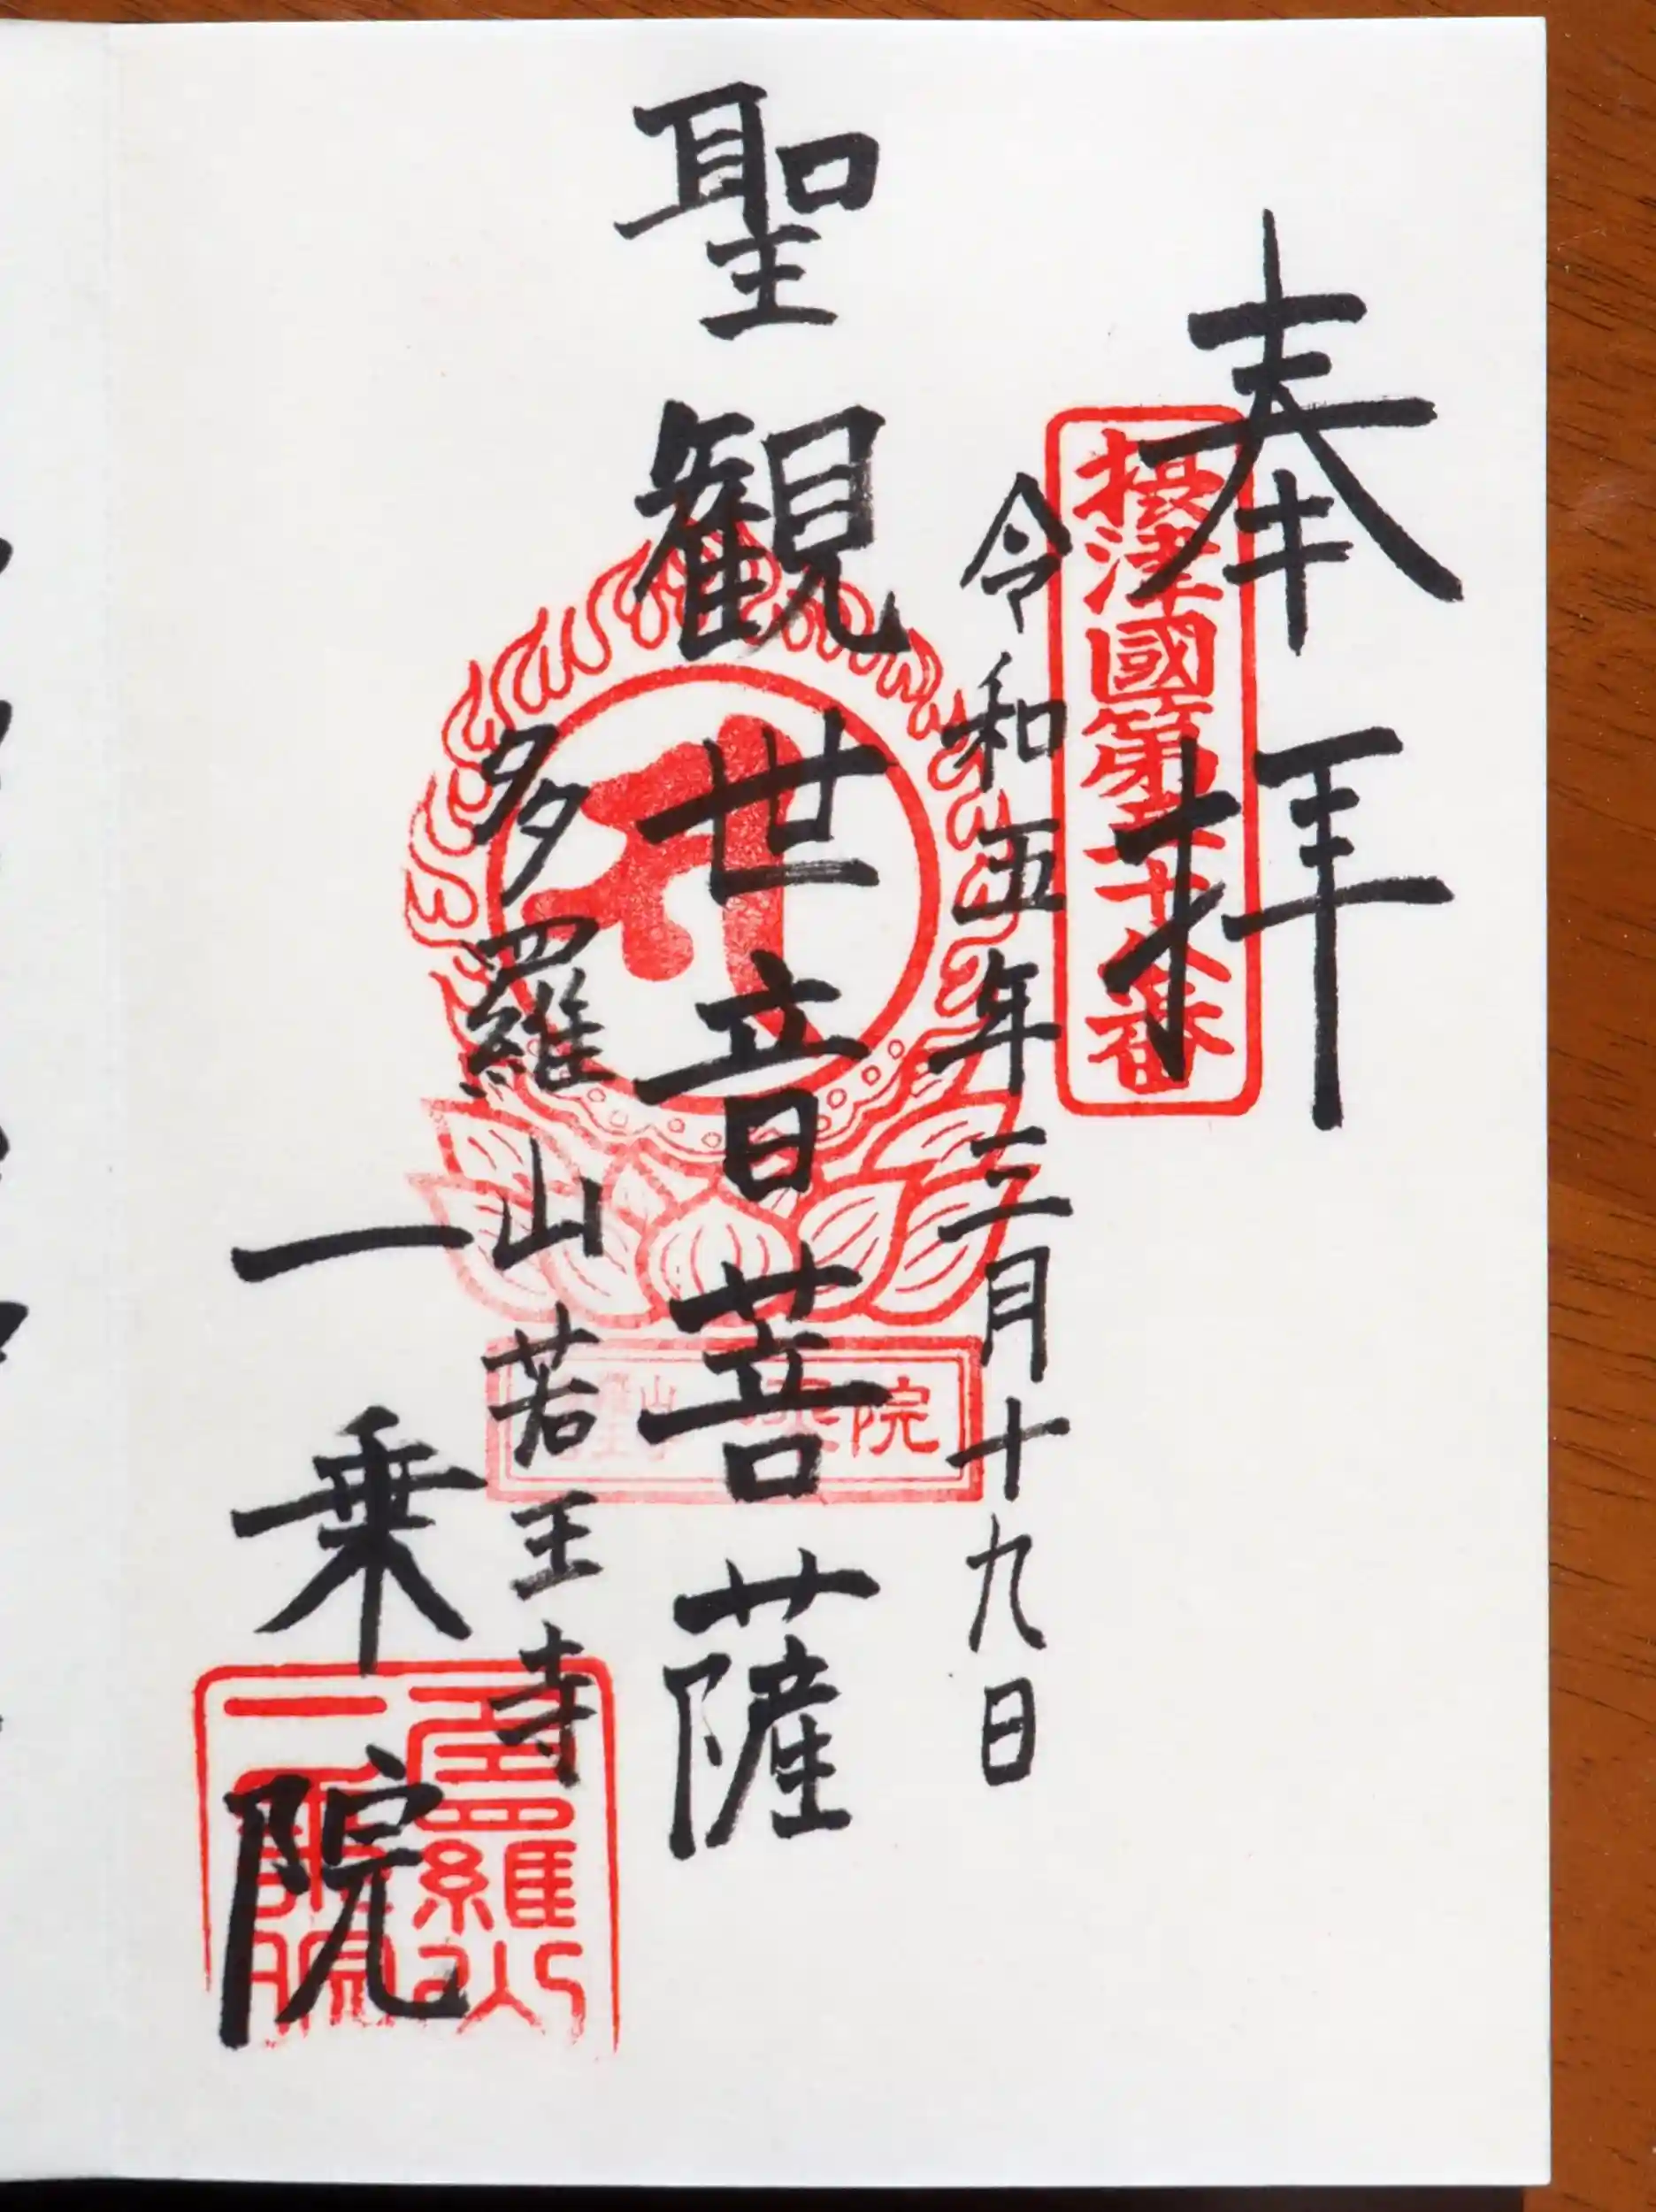 奉拝
摂津國第 十 番
令和五年三月十九日
聖観世音菩薩
多羅山若王寺
一乗院
院
多羅山
一乗院